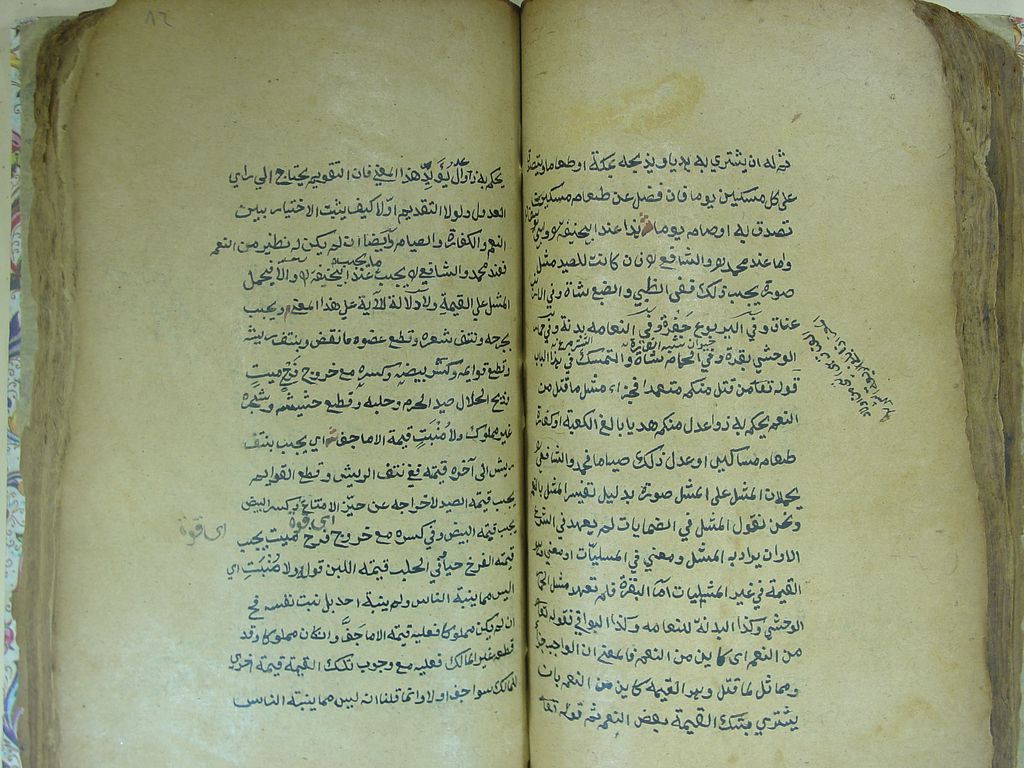 ثم له ان يشتري به هديا ويذبحه بمكة او طعاما ويتصدق
على كل مسكين يوما فان فضل عن طعام مسكين
تصدق به او صام يوما هذا عند ابيحنيفة وابي يوسف
واما عند محمد والشافعي ان كانت للصيد مثل
صورة يجب ذلك ففي الظبي والضبع شاة وفي الارنب
عناق وفي اليربوع جفرة وفي النعامه بدنة وفي حمار
الوحشي بقرة وفي الحمامة شاة والتمسك في هذا الباب
قوله تعا من قتل منكم متعمدا فجزاء مثل ما قتل من
النعم يحكم به ذوا عدل منكم هديا بالغ الكعبة او كفارة
طعام مساكين او عدل ذلك صياما فمحمد والشافعي
يحملان المثل على المثل صورة بدليل تفسير المثل بالنعم
ونحن نقول المثل في الضمانات لم يعهد في الشرع
الا ان يراد به المثل ومعنى في المثليات او معنى وهو
القيمة في غير المثليات اما البقرة فلم تعهد مثل الحمار
الوحشي وكذا البدنة للنعامه وكذا البواقي فقوله تعا
من النعم اي كاين من النعم فالمعنى ان الواجب جزاء
ومماثل لما قتل وهو القيمة كاين من النعم بان
يشتري بتلك القيمة بعض النعم ثم قوله تعا
٨٦
يحكم به ذوا عدل يؤيد هذا المعنى فان التقويم يحتاج الى راي
العدول ولولا التقديم اولا كيف يثبت الاختيار بين
النعم والكفارة والصيام وايضا ان لم يكن له نظير من النعم
فعند محمد والشافعي يجب ما يجب عند ابيحنيفة والا يحمل
المثل على القيمة ولا دلالة للآية على هذا المعنى ويجب
بجرحه ونتف شعره وقطع عضوه ما نقص وبنتف ريشه
وقطع قوايمه وكسر بيضه وكسره مع خروج فرخ ميت
وذبح الحلال صيد الحرم وحلبه وقطع حشيشه وشجره
غير مملوك ولا منبت قيمة الا ما جف اي يجب بنتف
ريش الى آخره قيمته ففي نتف الريش وقطع القوايم
يجب قيمة الصيد لاخراجه عن حيز الامتناع وبكسر البيض
يجب قيمة البيض وفي كسره مع خروج فرخ ميت يجب
اي قوة
قيمة الفرخ حيا في الحلب قيمة اللبن قوله ولا منبت اي
ليس مما ينبته الناس ولم ينبته احد بل نبت بنفسه فح
ان لم يكن مملوكا فعليه قيمة الا ما جف وان كان مملوكا وقد
قطعه غير المالك فعليه مع وجوب تلك القيمة قيمة اخرى
للمالك سوا جف اولا وانما قلنا انه ليس مما ينبته الناس